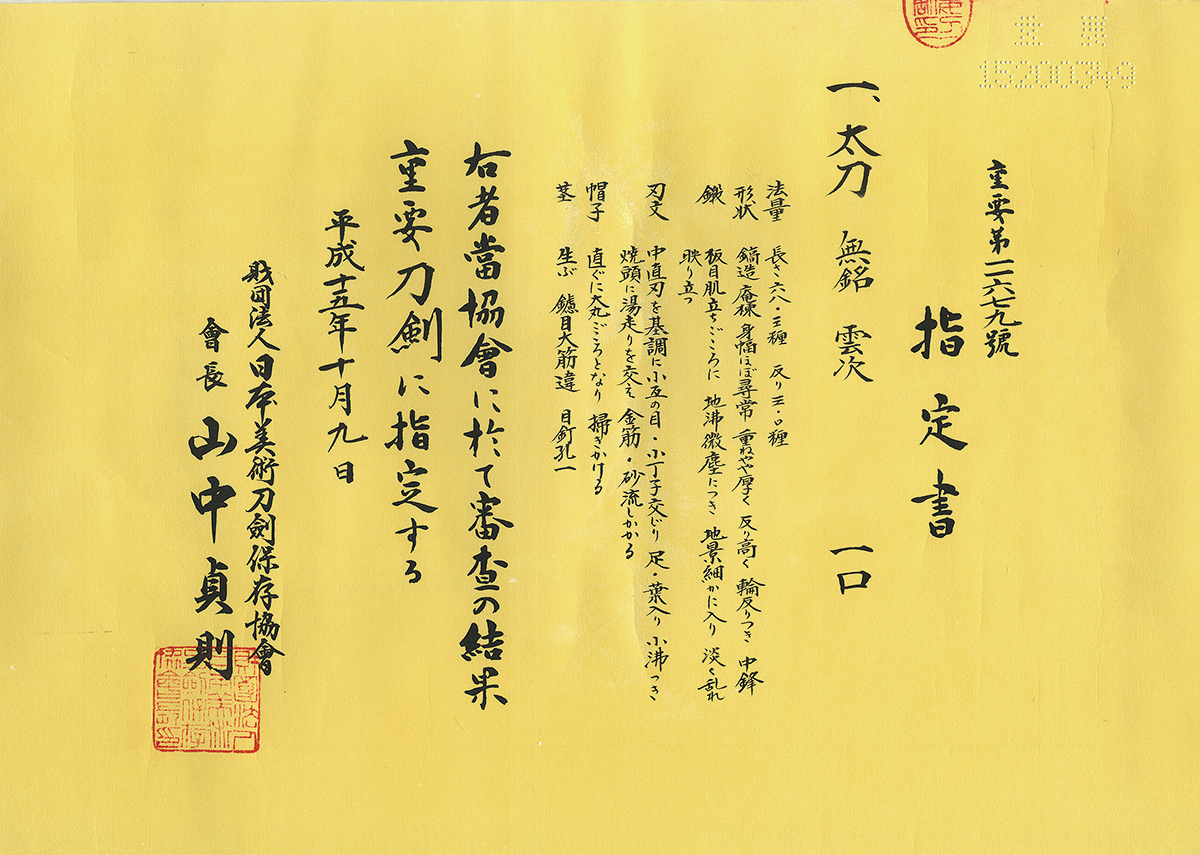 15200349
重要第一一六七九號
指定書
一、太刀 無銘 雲次 一口
法量 長さ六八・三糎 反り三・〇糎
形状 鎬造 庵棟 身幅ほぼ尋常 重ねやや厚く 反り高く 輪反りつき 中鋒
鍛 板目肌立ちごころに 地沸微塵につき 地景細かに入り 淡く乱れ
映り立つ
刃文 中直刃を基調に小互の目・小丁子交じり 足・葉入り 小沸つき
焼頭に湯走りを交え 金筋・砂流しかかる
帽子 直ぐに大丸ごころとなり 掃きかける
茎 生ぶ 鑢目大筋違 目釘孔一
右者當協會に於て審査の結果
重要刀剣に指定する
平成十五年十月九日
財団法人日本美術刀劍保存協會
會長 山中貞則